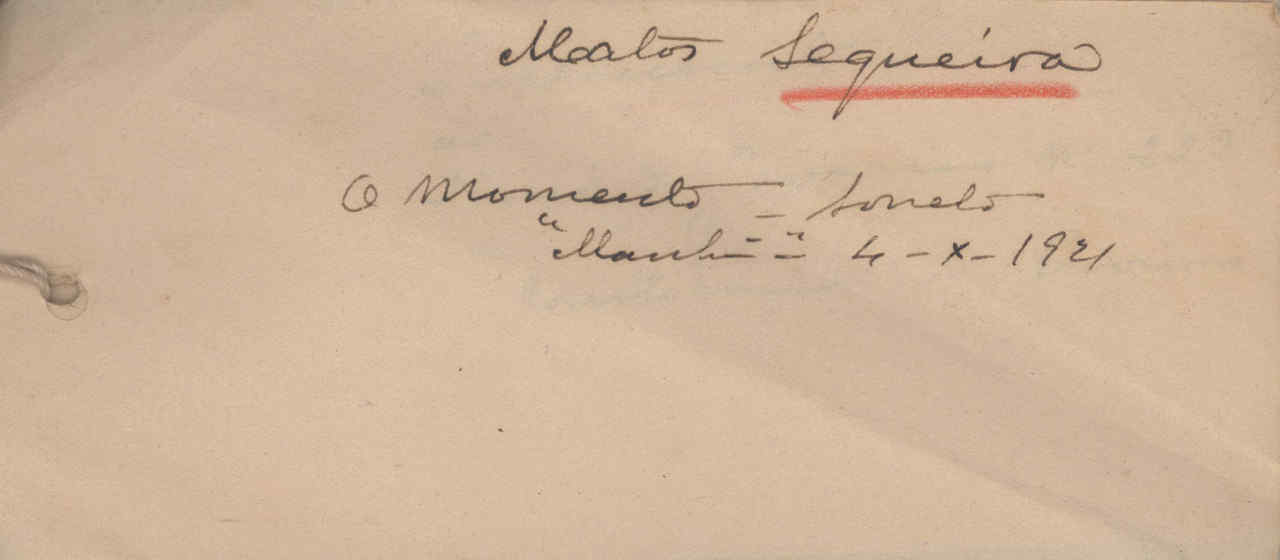 Matos Sequeira
O Momento - Soneto
"Manhã" - 4-X-1921